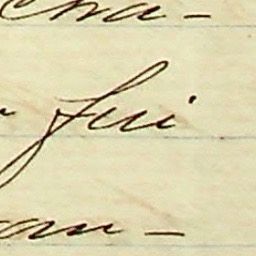 cha-
fui
au-